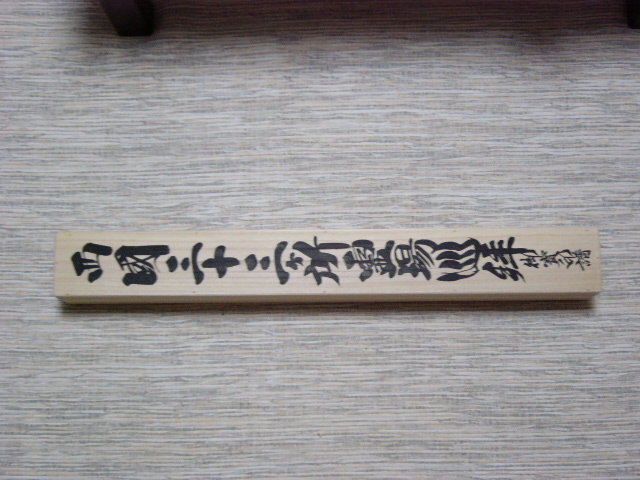 西國三十三ヶ所霊場巡拝